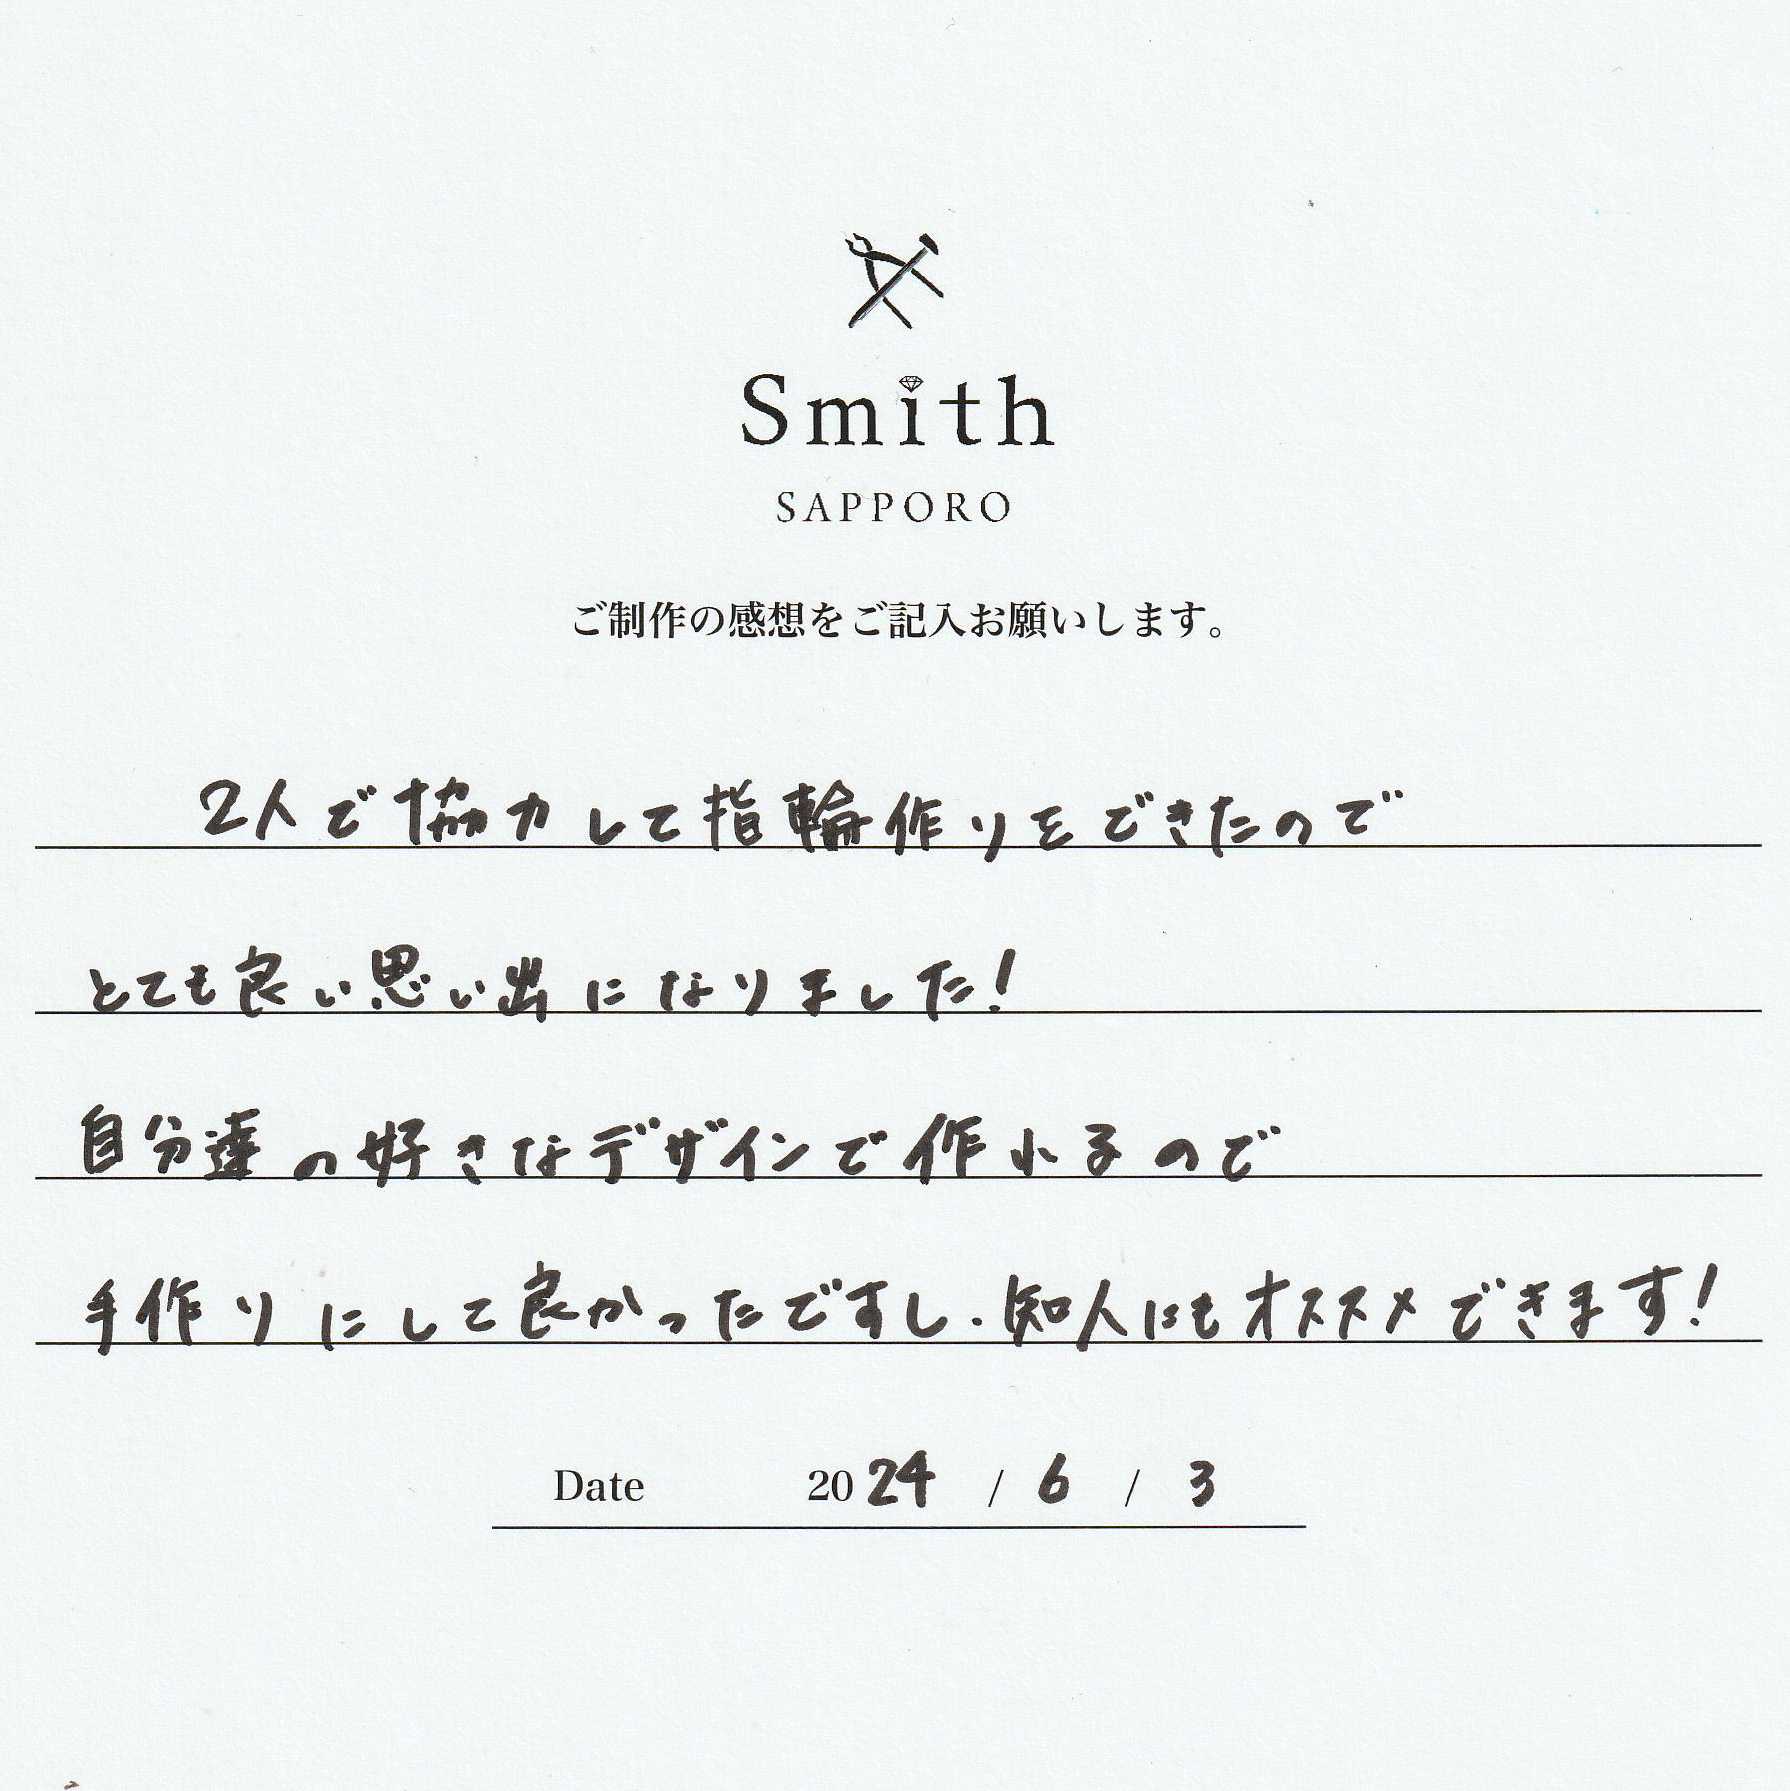 Smith
SAPPORO
ご制作の感想をご記入お願いします。
2人で協力して指輪作りをできたので
とても良い思い出になりました!
自分達の好きなデザインで作れるので
手作りにして良かったですし、知人にもオススメできます!
Date 2024 / 6 / 3